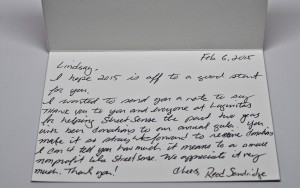 Feb 6, 2015
Lindsay,
I hope 2015 is off to a good start
for you.
I wanted to send you a note to say
THANK YOU to you and everyone at Lagunitas
for helping Street Sense the past two years
with beer donations to our annual gala. You
make it so straightforward to receive donations
I can't tell you how much it means to a small
nonprofit like Street Sense. We appreciate it very
much. Thank you!
Cheers,
Reed Sandridge